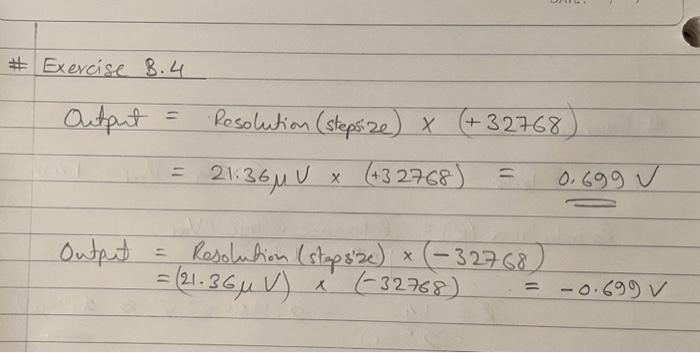 # Exercise B.4
Output = Resolution (stepsize) × (+32768)
= 21.36μV × (+32768) = 0.699 V
Output = Resolution (stepsize) × (-32768)
= (21.36μV) × (-32768) = -0.699 V